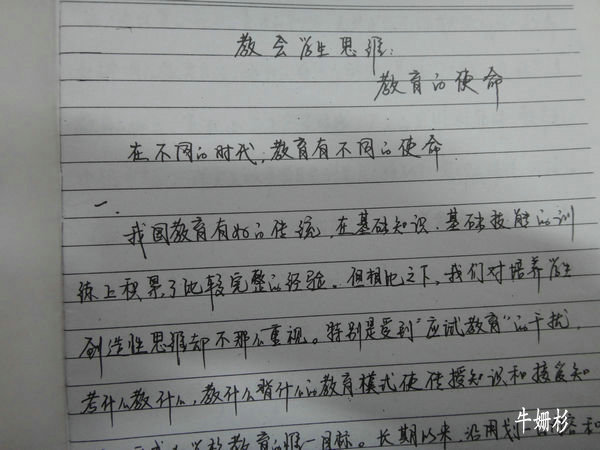 教会学生思维:
教育的使命
在不同的时代,教育有不同的使命
一.
我国教育有好的传统,在基础知识、基础技能的训
练上积累了比较完整的经验。但相比之下,我们对培养学生
创造性思维却不那么重视。特别是受到"应试教育"的干扰,
考什么教什么,教什么背什么的教育模式使传授知识和接受知
教育的唯一目标。长期以来,沿用
牛姗杉